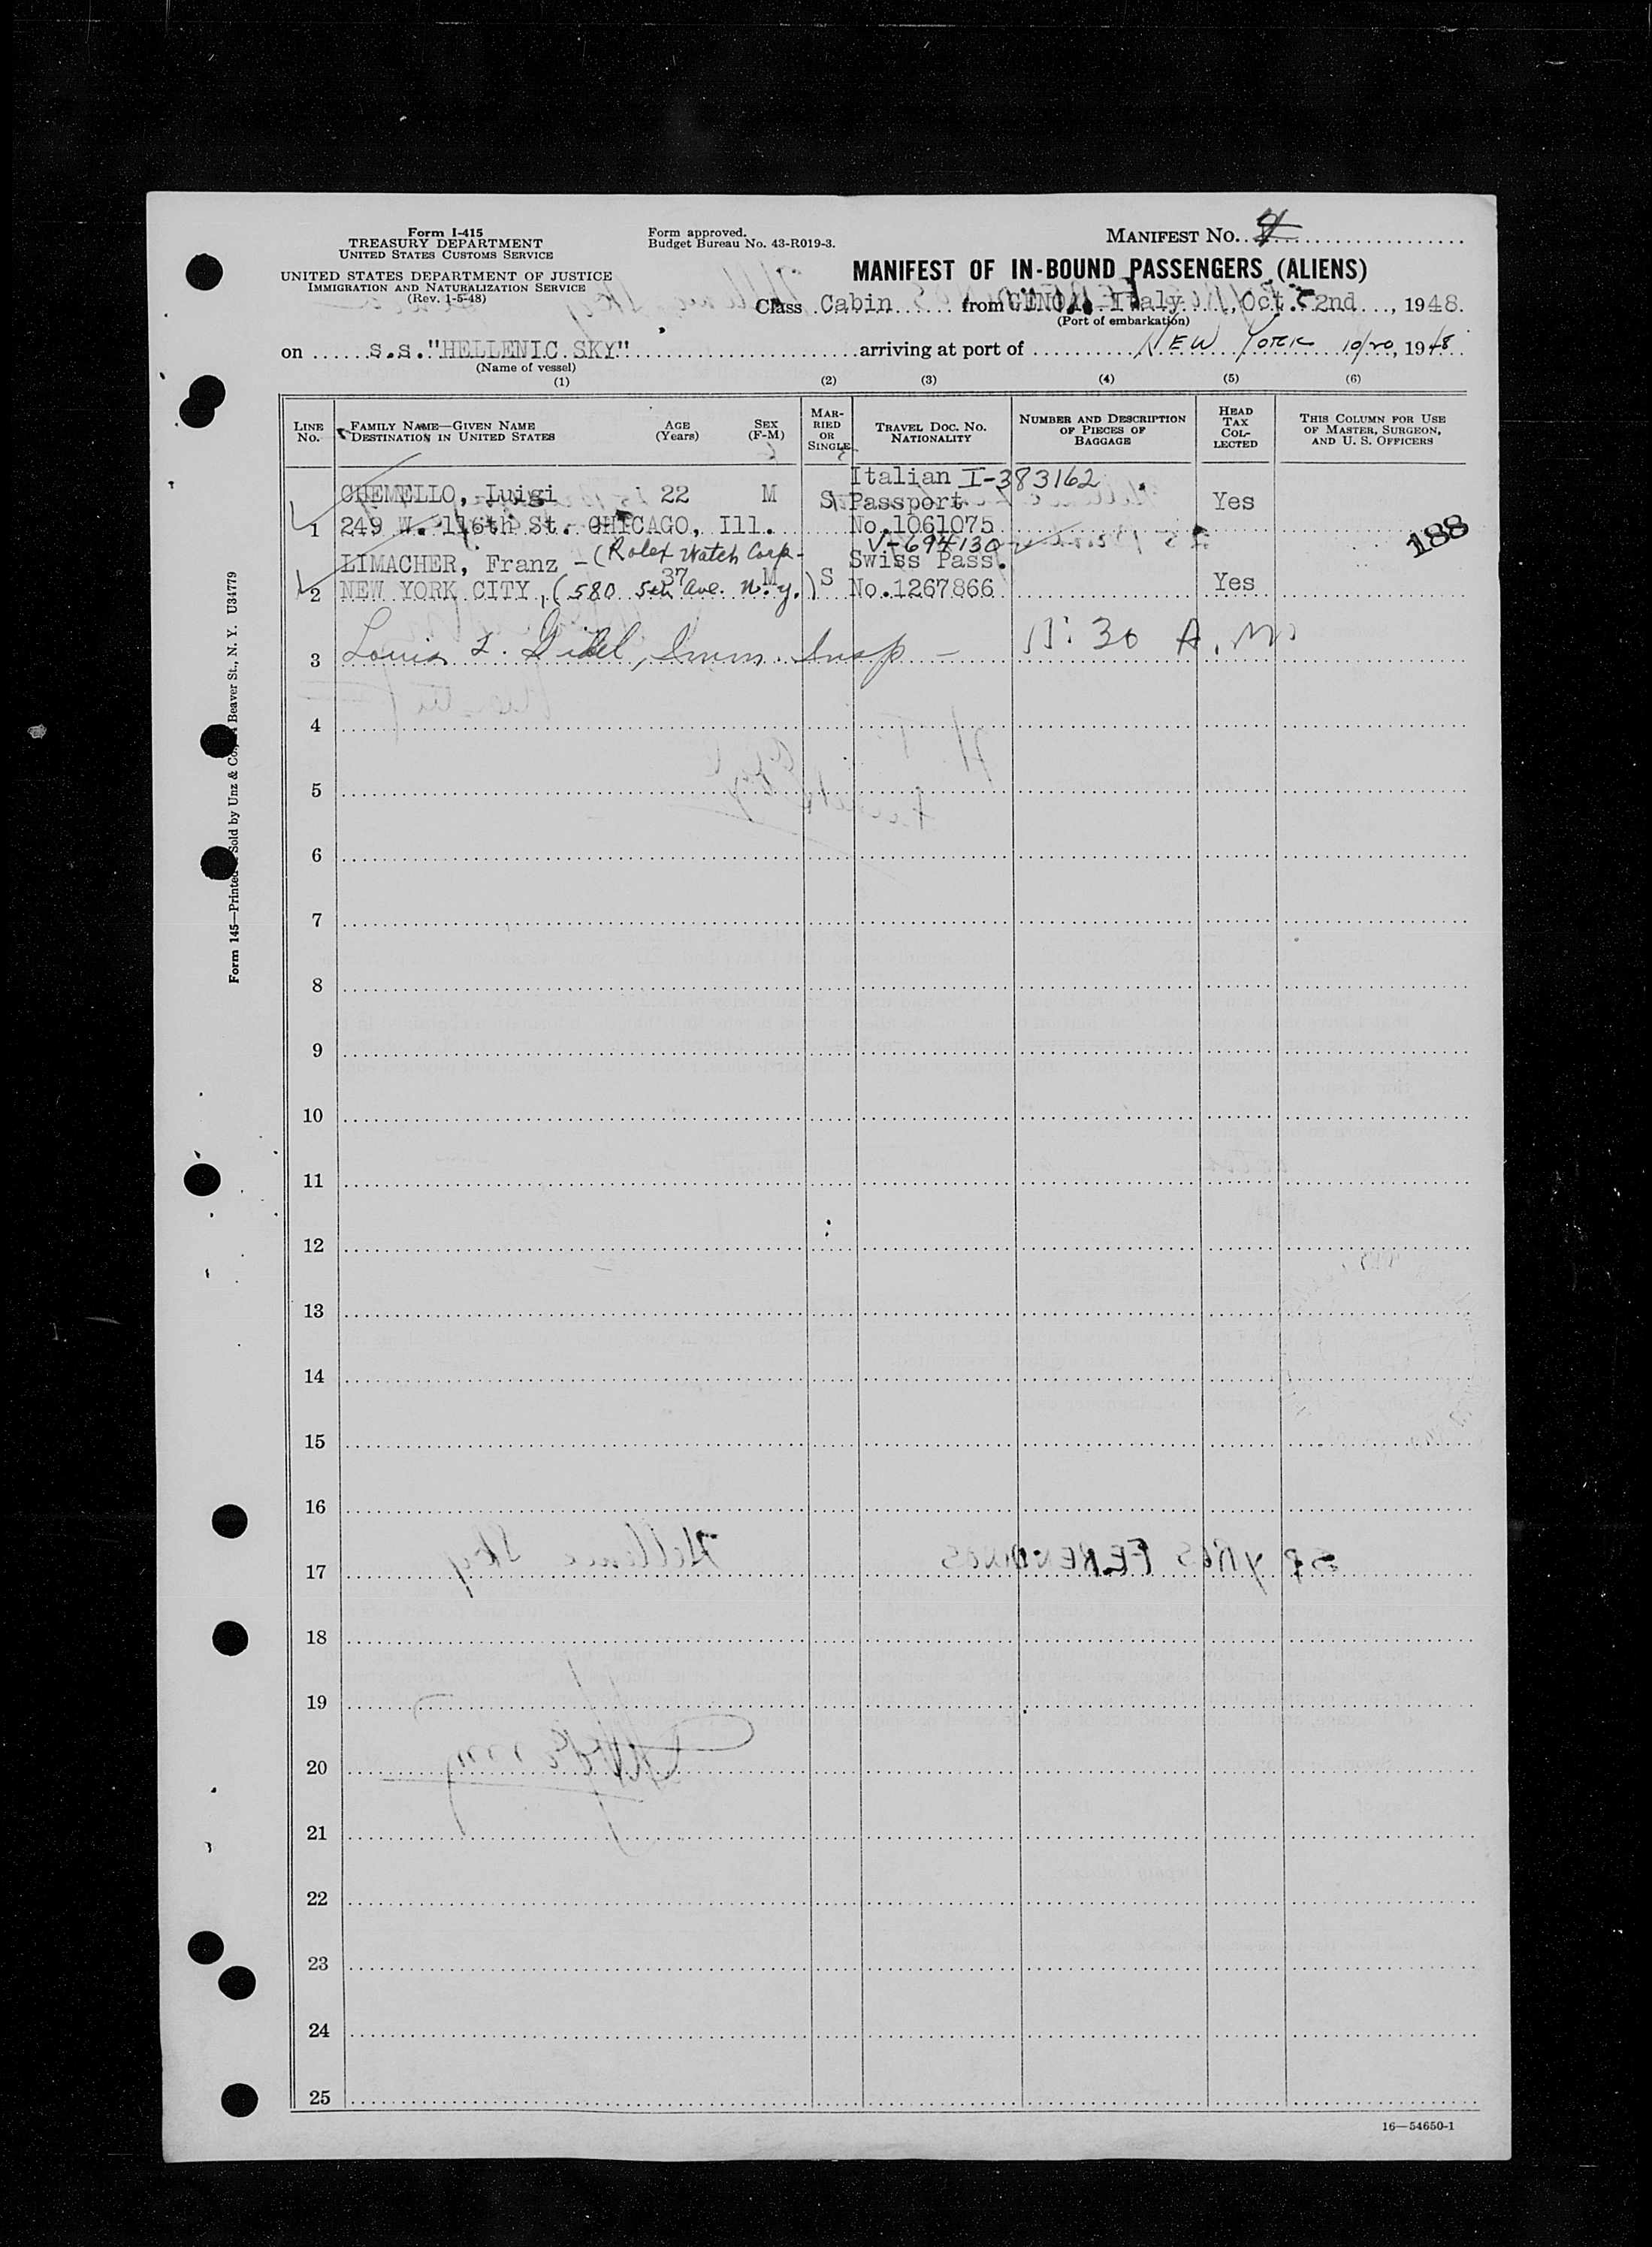 Form I-415
TREASURY DEPARTMENT
UNITED STATES CUSTOMS SERVICE
UNITED STATES DEPARTMENT OF JUSTICE
IMMIGRATION AND NATURALIZATION SERVICE
(Rev. 1-5-48)
Form approved.
Budget Bureau No. 43-R019-3.
MANIFEST No.
MANIFEST OF IN-BOUND PASSENGERS (ALIENS)
Class Cabin from GENOA Italy, Oct. 2nd, 1948.
(Port of embarkation)
on s.s."HELLENIC SKY" arriving at port of NEW YORK 10/20, 1948
(Name of vessel)
(1) (2) (3) (4) (5) (6)
LINE No. FAMILY NAME—GIVEN NAME DESTINATION IN UNITED STATES AGE (Years) SEX (F-M) MARRIED OR SINGLE TRAVEL DOC. NO. NATIONALITY NUMBER AND DESCRIPTION OF PIECES OF BAGGAGE HEAD TAX COLLECTED THIS COLUMN FOR USE OF MASTER, SURGEON, AND U. S. OFFICERS
Italian I-383162
CHEMELLO, Luigi 22 M S Passport Yes
1 249 W. 116th St. CHICAGO, Ill. No.1061075
V-694130
188
LIMACHER, Franz - (Rolex Watch Corp- Swiss Pass.
37 M S Yes
2 NEW YORK CITY, (580 5th Ave. N.Y.) No.1267866
3 Louis Imm. Insp - 11:30 A.M.
4
5
6
7
8
9
10
11
12
13
14
15
16
17 Hellenic Sky
18
19
20
21
22
23
24
25
Form 145—Printed Sold by Unz & Co., Beaver St., N. Y. U34779
16—54650-1